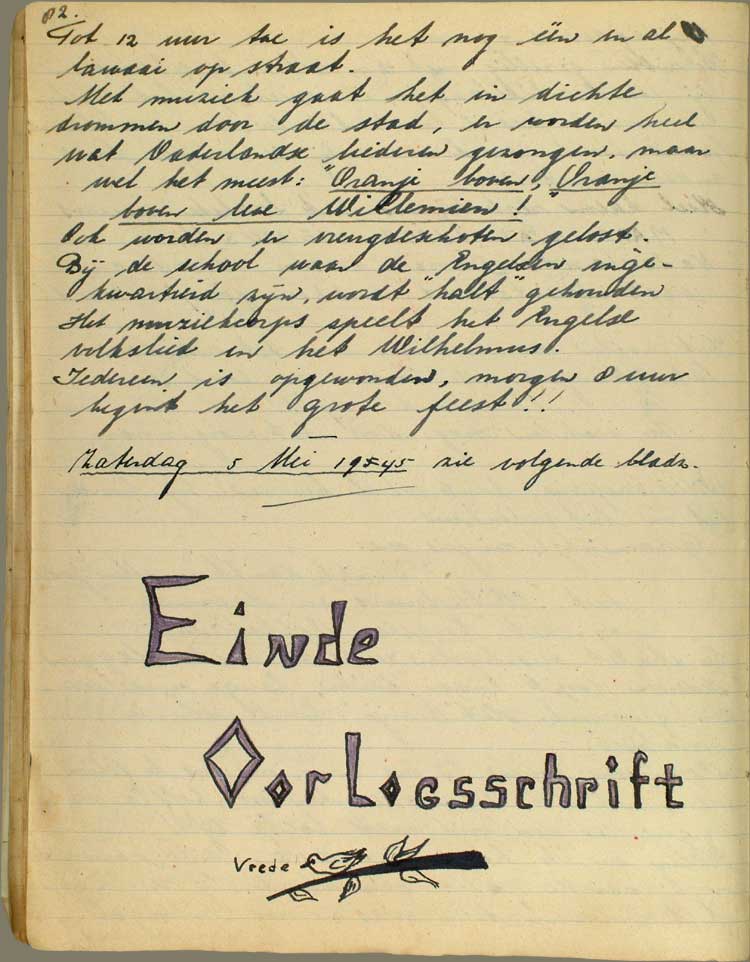 82.
Tot 12 uur toe is het nog één en al
lawaai op straat.
Met muziek gaat het in dichte
drommen door de stad, er worden heel
wat Vaderlandse liederen gezongen, maar
wel het meest: "Oranje boven, Oranje
boven leve Willemien!"
Ook worden er vreugdeschoten gelost.
Bij de school waar de Engelsen inge-
kwartierd zijn, wordt "halt" gehouden
Het muziekcorps speelt het Engelse
volkslied en het Wilhelmus.
Iedereen is opgewonden, morgen 8 uur
begint het grote feest!!
Zaterdag 5 Mei 1945 zie volgende bladz.
Einde
Oorlogsschrift
Vrede